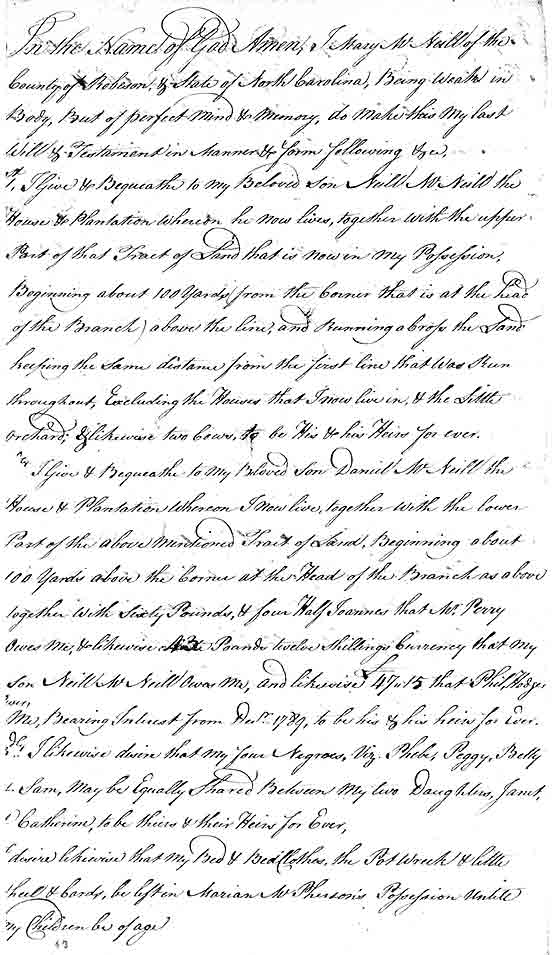 In the Name of God Amen, I Mary McNeill of the
County of Robeson, & State of North Carolina, Being Weak in
Body, But of perfect Mind & Memory, do Make this My last
Will & Testament in Manner & form following &c,
st, I Give & Bequeathe to my Beloved Son Neill McNeill the
House & Plantation Whereon he now lives, together With the upper
Part of that Tract of Land that is now in my Possession,
Beginning about 100 Yards (from the Corner that is at the head
of the Branch) above the line, and Running abross the Land
keeping the Same distance from the first line that Was Run
throughout, Excluding the Houses that I now live in, & the Little
orchard; & likewise two Cows, to be His & his Heirs for ever.
I Give & Bequeathe to My Beloved Son Daniel McNeill the
House & Plantation Whereon I now live, together With the lower
Part of the above Mentioned Tract of Land, Beginning about
100 Yards above the Corner at the Head of the Branch as above
together With Sixty Pounds, & four Half Joannes that Mr Perry
Owes Me, & likewise 43 Pounds twelve Shillings Currency that my
Son Neill McNeill Owes Me, and likewise £47..15 that Phil Hodges
owes
Me, Bearing Interest from Decr. 1789, to be his & his heirs for Ever.
I likewise desire that my four Negroes, Viz. Phebe, Peggy, Betty
Sam, May be Equally Shared Between My two Daughters, Janet,
Catherine, to be theirs & their Heirs for Ever,
desire likewise that my Bed & Bed Clothes, the Pot Wreck & little
heel & Cards, be left in Marian McPherson's Possession Untill
my Children be of age
43